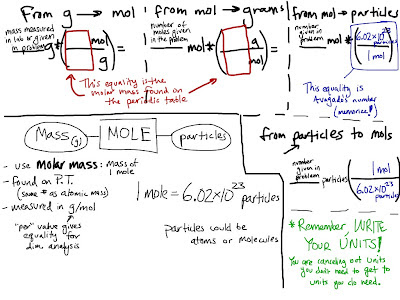 From g → mol
mass measured
in lab or given
in problem
g * ( mol / g ) =
from mol → grams
number of
moles given
in the problem
mol * ( g / mol ) =
This equality is the
molar mass found on
the periodic table
from mol → particles
number
given in
problem
mol * ( 6.02x10^23 particles / 1 mol )
This equality is
Avagadro's number
(memorize!)
Mass (g)
MOLE
particles
- use molar mass: mass of
1 mole
- found on P.T.
(same # as atomic mass)
- measured in g/mol
"per" value gives
equality for
dim. analysis
1 mole = 6.02x10^23 particles
particles could be
atoms or molecules
from particles to mols
number
given in
problem
particles ( 1 mol / 6.02x10^23 particles )
* Remember, WRITE
YOUR UNITS!
You are canceling out units
you don't need to get to
units you do need.